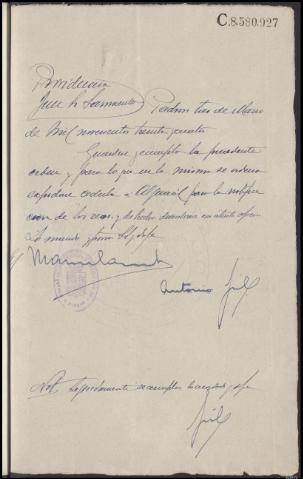 C.8.580.927
Providencia
Juez Sr Sarmiento Padrón tres de Marzo
de mil novecientos treinta y cuatro
Guardese y cumplase la precedente
orden y para lo que en la misma se ordena
expidase cedula a Alguacil para la notifica
cion de los reos, y de hecho devuelvase
Lo mando y firma SSª doy fe
Antonio Gil
Not. Seguidamente se cumple lo acordado doy fe
Gil